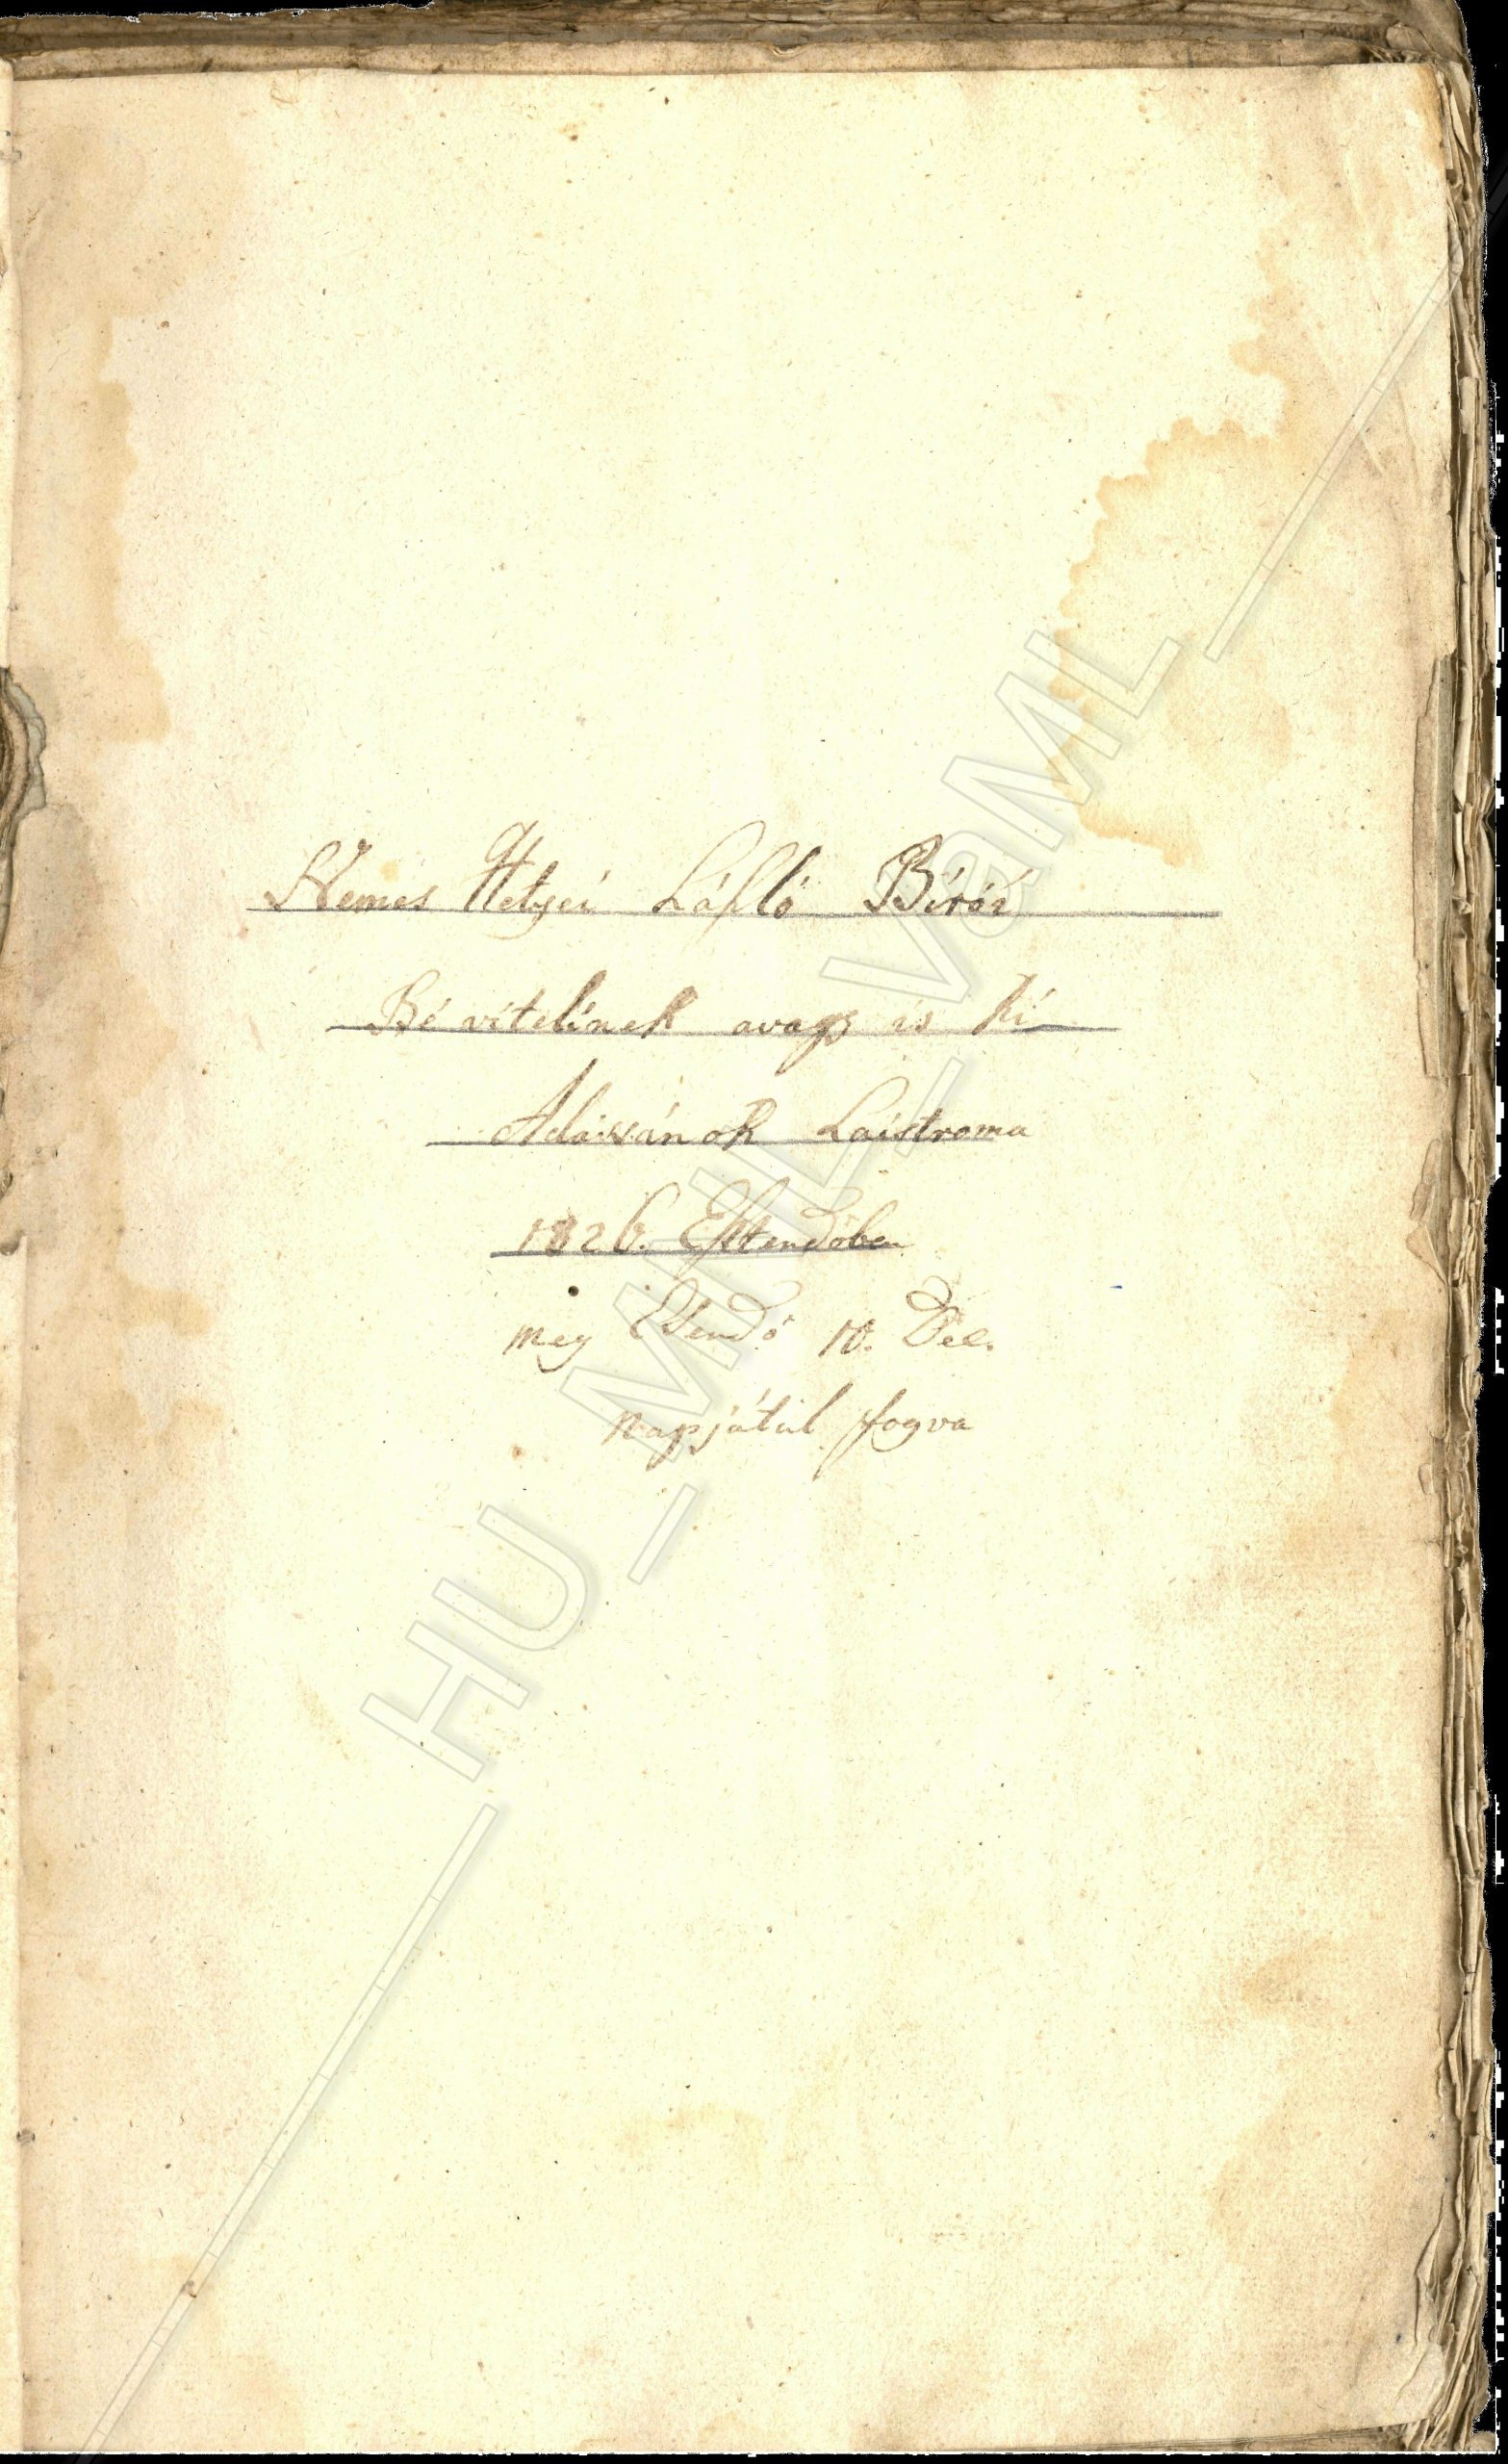 Nemes Hetyei Láſló Bírói
Bé vítelínek avagy is Kí
Adássának Laistroma
1826. Eſztendőben
meg Eſendő 10. Dec.
Napjátúl fogva
HU_MNL_VaML